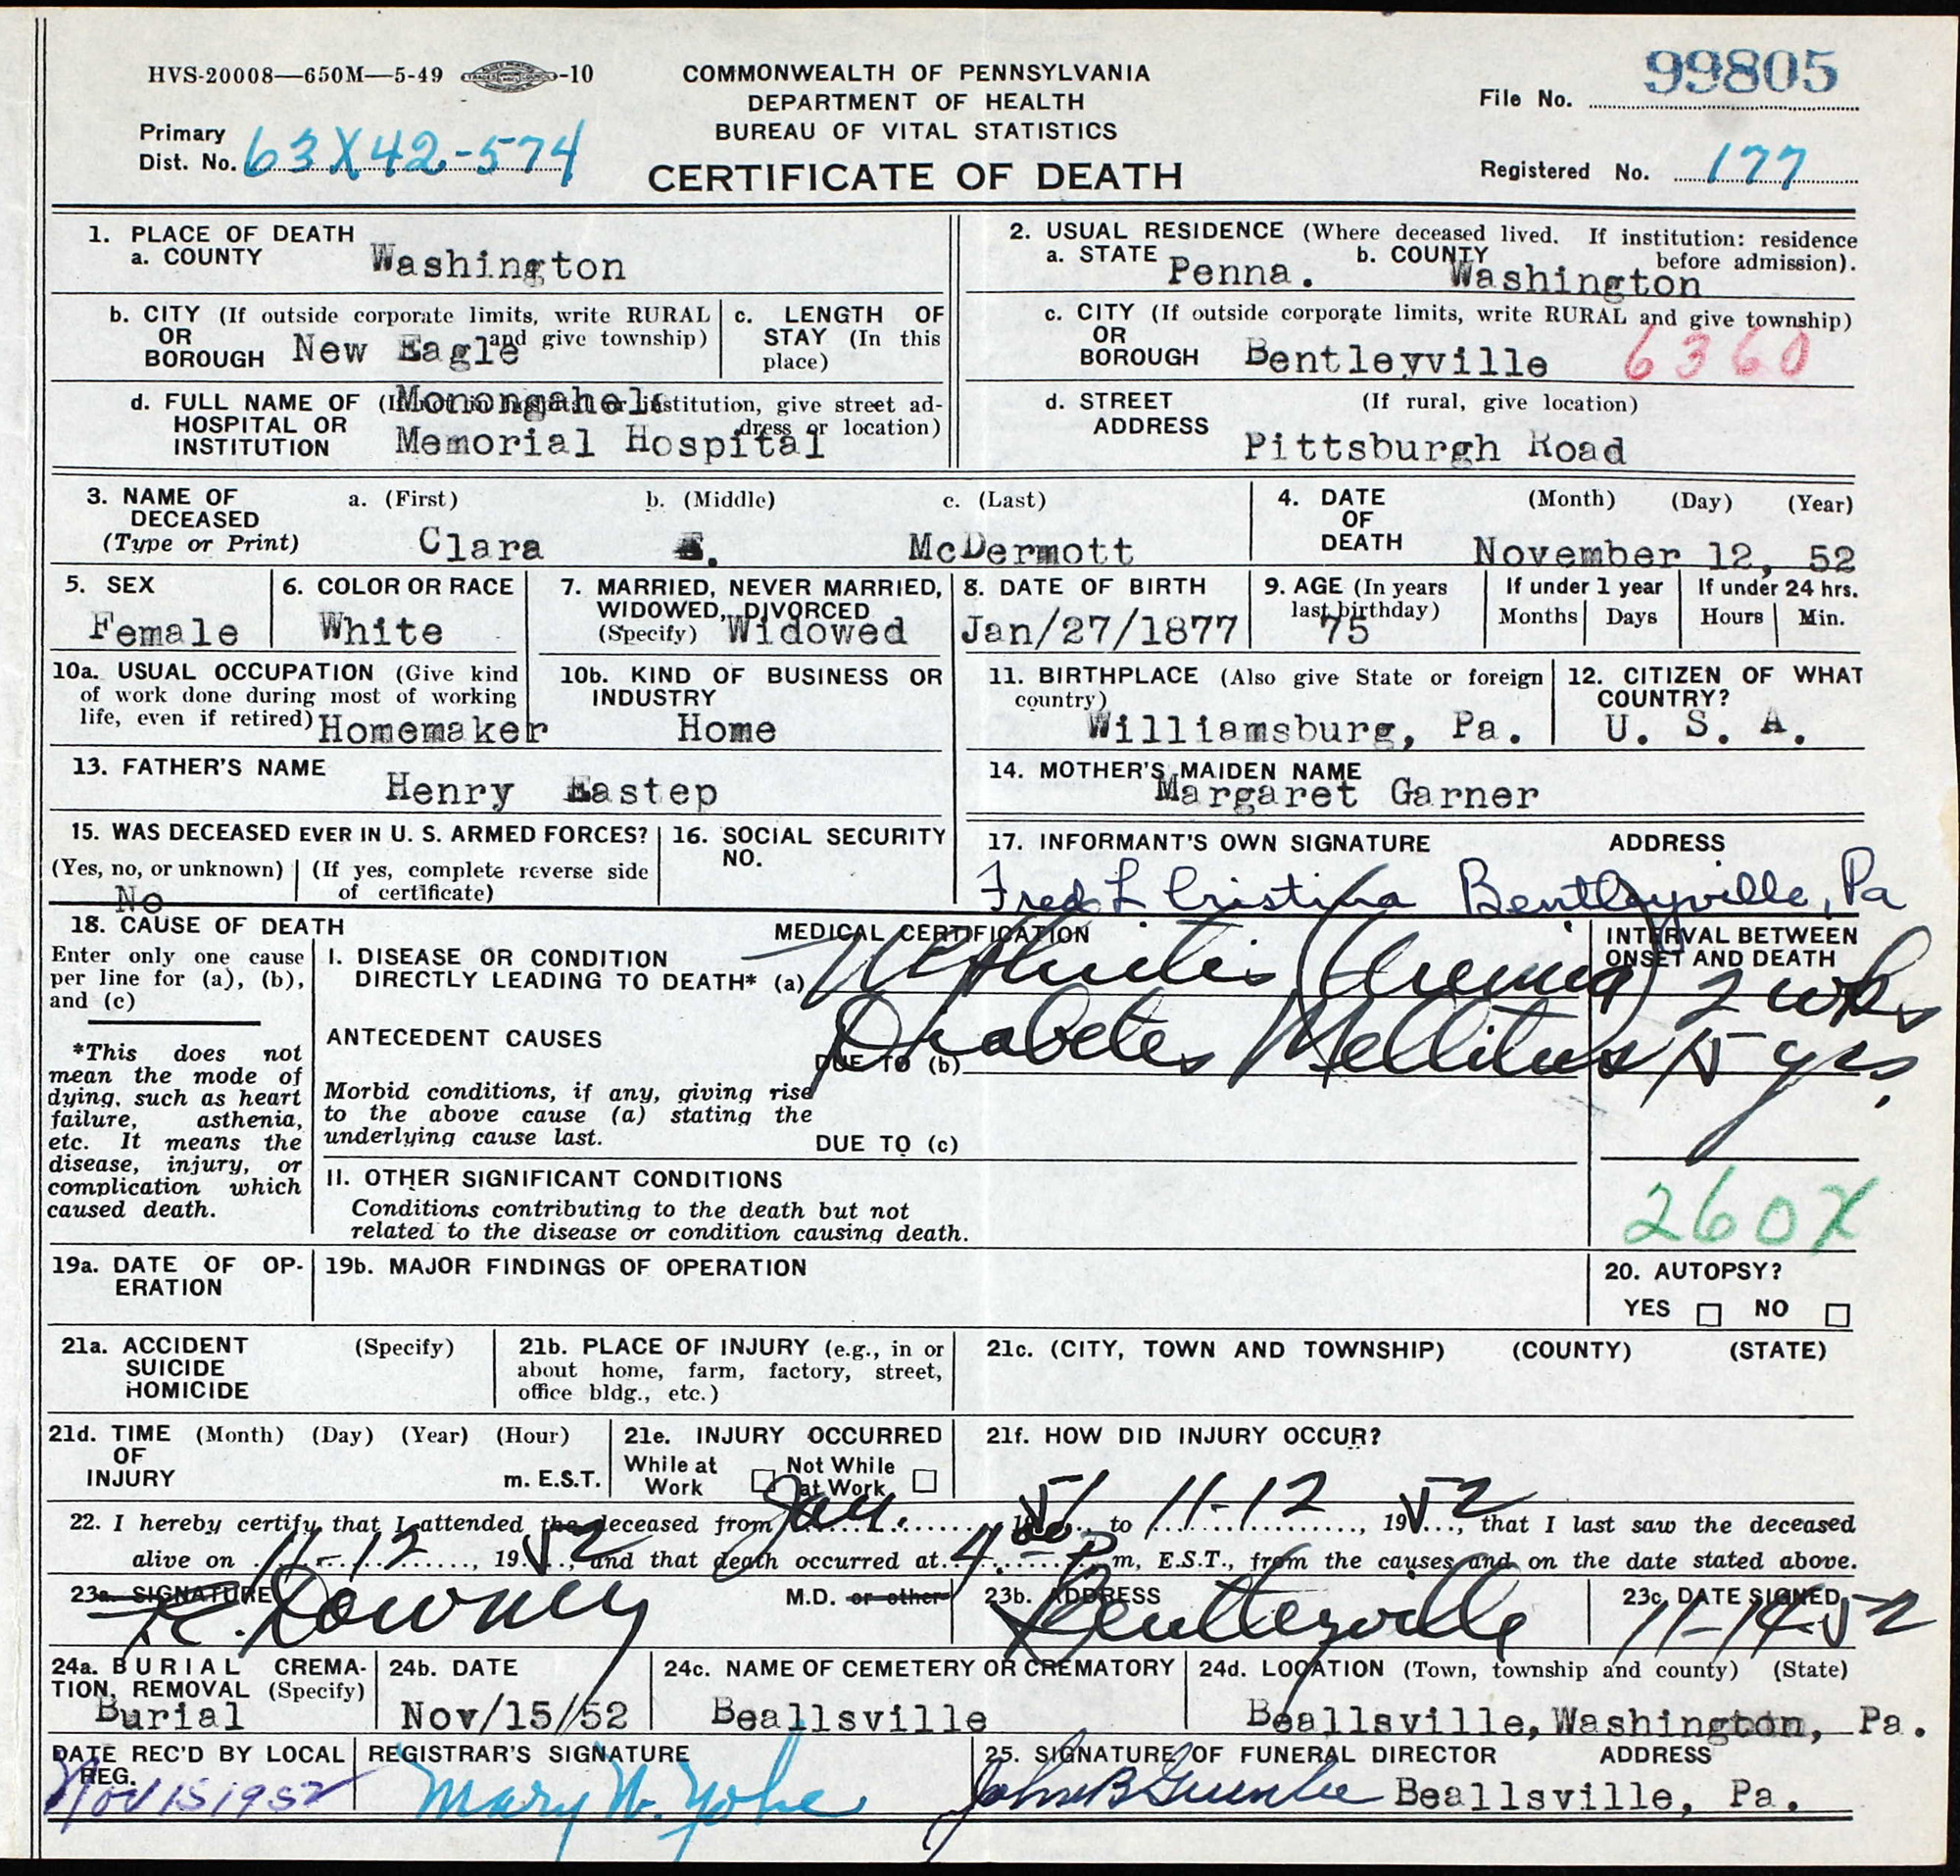 HVS-20008—650M—5-49 -10
COMMONWEALTH OF PENNSYLVANIA
DEPARTMENT OF HEALTH
BUREAU OF VITAL STATISTICS
CERTIFICATE OF DEATH
File No. 99805
Primary
Dist. No. 63X42-574
Registered No. 177
1. PLACE OF DEATH
a. COUNTY Washington
b. CITY (If outside corporate limits, write RURAL
OR and give township)
BOROUGH New Eagle
c. LENGTH OF
STAY (In this
place)
d. FULL NAME OF (If not in hospital or institution, give street ad-
HOSPITAL OR dress or location)
INSTITUTION Monongahela
Memorial Hospital
2. USUAL RESIDENCE (Where deceased lived. If institution: residence
before admission).
a. STATE Penna. b. COUNTY Washington
c. CITY (If outside corporate limits, write RURAL and give township)
OR
BOROUGH Bentleyville 6360
d. STREET (If rural, give location)
ADDRESS Pittsburgh Road
3. NAME OF a. (First) b. (Middle) c. (Last)
DECEASED
(Type or Print) Clara E. McDermott
4. DATE (Month) (Day) (Year)
OF
DEATH November 12, 52
5. SEX
Female
6. COLOR OR RACE
White
7. MARRIED, NEVER MARRIED,
WIDOWED, DIVORCED
(Specify) Widowed
8. DATE OF BIRTH
Jan/27/1877
9. AGE (In years
last birthday)
75
If under 1 year
Months Days
If under 24 hrs.
Hours Min.
10a. USUAL OCCUPATION (Give kind
of work done during most of working
life, even if retired) Homemaker
10b. KIND OF BUSINESS OR
INDUSTRY
Home
11. BIRTHPLACE (Also give State or foreign
country)
Williamsburg, Pa.
12. CITIZEN OF WHAT
COUNTRY?
U. S. A.
13. FATHER'S NAME
Henry Eastep
14. MOTHER'S MAIDEN NAME
Margaret Garner
15. WAS DECEASED EVER IN U. S. ARMED FORCES?
(Yes, no, or unknown) (If yes, complete reverse side
of certificate)
No
16. SOCIAL SECURITY
NO.
17. INFORMANT'S OWN SIGNATURE ADDRESS
Fred L Cristina Bentleyville, Pa
18. CAUSE OF DEATH
Enter only one cause
per line for (a), (b),
and (c)
*This does not
mean the mode of
dying, such as heart
failure, asthenia,
etc. It means the
disease, injury, or
complication which
caused death.
MEDICAL CERTIFICATION
INTERVAL BETWEEN
ONSET AND DEATH
I. DISEASE OR CONDITION
DIRECTLY LEADING TO DEATH* (a) Nephritis (Uremia) 2 wks
ANTECEDENT CAUSES
DUE TO (b) Diabetes Mellitus 15 yrs.
Morbid conditions, if any, giving rise
to the above cause (a) stating the
underlying cause last.
DUE TO (c)
II. OTHER SIGNIFICANT CONDITIONS
Conditions contributing to the death but not
related to the disease or condition causing death.
260X
19a. DATE OF OP-
ERATION
19b. MAJOR FINDINGS OF OPERATION
20. AUTOPSY?
YES NO
21a. ACCIDENT (Specify)
SUICIDE
HOMICIDE
21b. PLACE OF INJURY (e.g., in or
about home, farm, factory, street,
office bldg., etc.)
21c. (CITY, TOWN AND TOWNSHIP) (COUNTY) (STATE)
21d. TIME (Month) (Day) (Year) (Hour)
OF
INJURY m. E.S.T.
21e. INJURY OCCURRED
While at Not While
Work at Work
21f. HOW DID INJURY OCCUR?
22. I hereby certify that I attended the deceased from Jan. 1951, to 11-12, 1952, that I last saw the deceased
alive on 11-12, 1952, and that death occurred at 4 00 P m, E.S.T., from the causes and on the date stated above.
23a. SIGNATURE M.D. or other
K. Downey
23b. ADDRESS
Bentleyville
23c. DATE SIGNED
11-14-52
24a. BURIAL CREMA-
TION, REMOVAL (Specify)
Burial
24b. DATE
Nov/15/52
24c. NAME OF CEMETERY OR CREMATORY
Beallsville
24d. LOCATION (Town, township and county) (State)
Beallsville, Washington, Pa.
DATE REC'D BY LOCAL
REG.
Nov 15 1952
REGISTRAR'S SIGNATURE
Mary W. Yohe
25. SIGNATURE OF FUNERAL DIRECTOR ADDRESS
John B Beallsville, Pa.